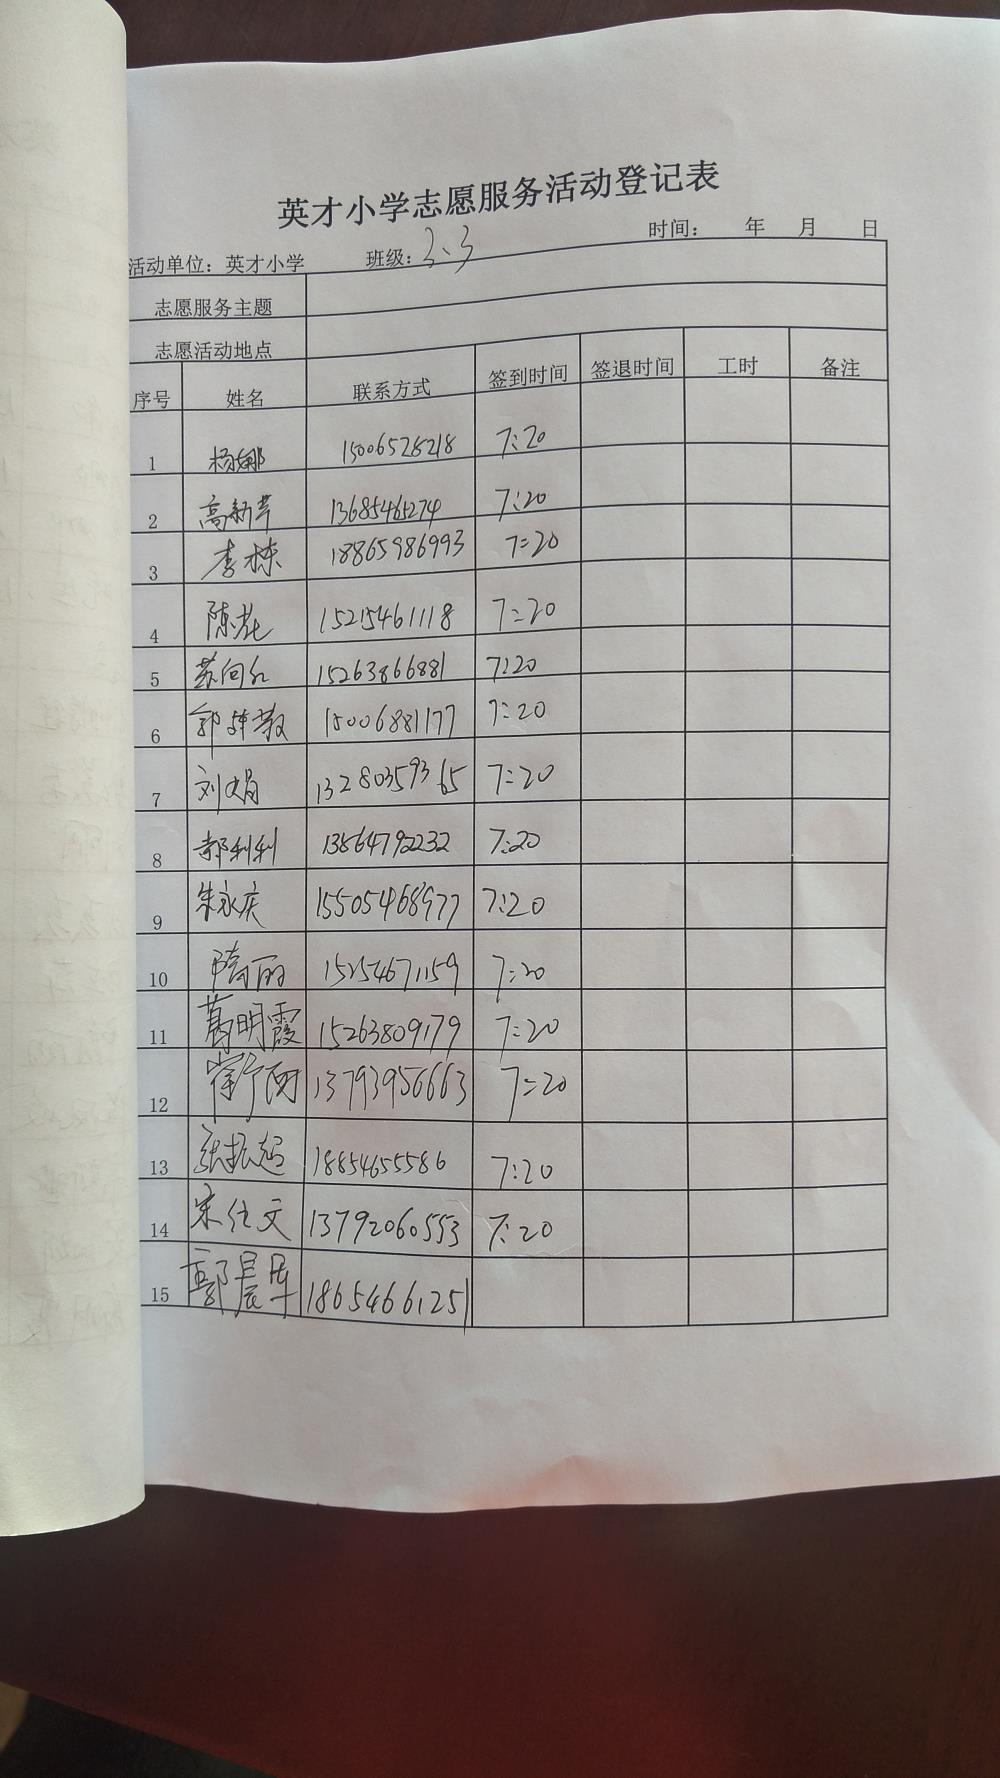 英才小学志愿服务活动登记表
时间： 年 月 日
活动单位：英才小学 班级：3、3
志愿服务主题
志愿活动地点
序号 姓名 联系方式 签到时间 签退时间 工时 备注
1 杨娜 15006528218 7:20
2 高新芹 13685465274 7:20
3 李栋 18865986993 7:20
4 陈花 15215461118 7:20
5 苏向红 15263866881 7:20
6 郭 15006881177 7:20
7 刘娟 13280359365 7:20
8 郝利利 13864792232 7:20
9 朱永庆 15505468977 7:20
10 隋丽 15254671159 7:20
11 葛明霞 15263809179 7:20
12 13793956663 7:20
13 张振超 18854655586 7:20
14 宋仕文 13792060553 7:20
15 郭晨军 18654661251